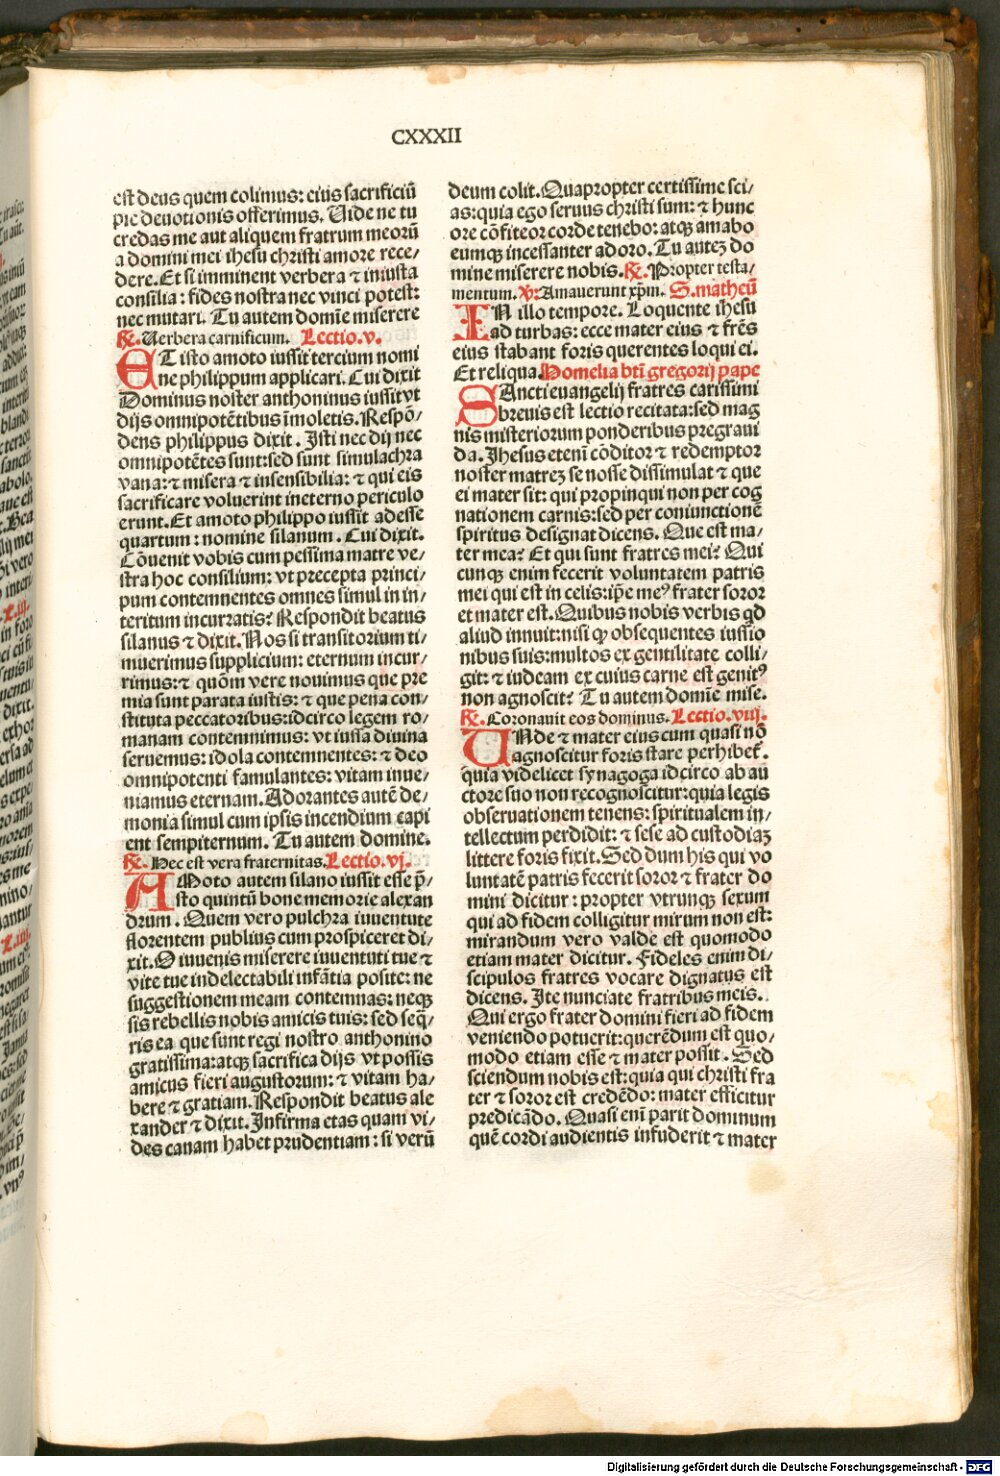 CXXXII
est deus quem colimus: eius sacrificiū
pie deuotionis offerimus. Uide ne tu
credas me aut aliquem fratrum meorū
a domini mei ihesu christi amore rece/
dere. Et si imminent verbera ⁊ iniusta
consilia: fides nostra nec vinci potest:
nec mutari. Tu autem domīe miserere
℟. Uerbera carnificum. Lectio.v.
ET isto amoto iussit tercium nomi
ne philippum applicari. Cui dixit
Dominus noster anthoninus iussit vt
dijs omnipotētibus īmoletis. Respō/
dens philippus dixit. Isti nec dij nec
omnipotētes sunt: sed sunt simulachra
vana: ⁊ misera ⁊ insensibilia: ⁊ qui eis
sacrificare voluerint in eterno periculo
erunt. Et amoto philippo iussit adesse
quartum: nomine silanum. Cui dixit.
Cōuenit vobis cum pessima matre ve/
stra hoc consilium: vt precepta princi/
pum contemnentes omnes simul in in/
teritum incurratis? Respondit beatus
silanus ⁊ dixit. Nos si transitorium ti/
muerimus supplicium: eternum incur/
rimus: ⁊ quōm vere nouimus que pre
mia sunt parata iustis: ⁊ que pena con/
stituta peccatoribus: idcirco legem ro/
manam contemnimus: vt iussa diuina
seruemus: idola contemnentes: ⁊ deo
omnipotenti famulantes: vitam inue/
niamus eternam. Adorantes autē de/
monia simul cum ipsis incendium capi
ent sempiternum. Tu autem domine.
℟. Hec est vera fraternitas. Lectio.vj.
AMoto autem silano iussit esse p̄/
sto quintū bone memorie alexan
drum. Quem vero pulchra iuuentute
florentem publius cum prospiceret di/
xit. O iuuenis miserere iuuentuti tue ⁊
vite tue indelectabili infātia posite: ne
suggestionem meam contemnas: neqꝫ
sis rebellis nobis amicis tuis: sed seq̄/
ris ea que sunt regi nostro anthonino
gratissima: atqꝫ sacrifica dijs vt possis
amicus fieri augustorum: ⁊ vitam ha/
bere ⁊ gratiam. Respondit beatus ale
xander ⁊ dixit. Infirma etas quam vi/
des canam habet prudentiam: si verū
deum colit. Quapropter certissime sci/
as: quia ego seruus christi sum: ⁊ hunc
ore cōfiteor corde tenebo: atqꝫ amabo
eumqꝫ incessanter adoro. Tu auteꝫ do
mine miserere nobis. ℟. Propter testa/
mentum. ℣: Amauerunt xp̄m. S. matheū
IN illo tempore. Loquente ihesu
ad turbas: ecce mater eius ⁊ fr̄es
eius stabant foris querentes loqui ei.
Et reliqua. Homelia bt̄i gregorij pape
SAncti euangelij fratres carissimi
breuis est lectio recitata: sed mag
nis misteriorum ponderibus pregraui
da. Ihesus etenī cōditor ⁊ redemptor
noster matreꝫ se nosse dissimulat ⁊ que
ei mater sit: qui propinqui non per cog
nationem carnis: sed per coniunctionē
spiritus designat dicens. Que est ma/
ter mea? Et qui sunt fratres mei? Qui
cunqꝫ enim fecerit voluntatem patris
mei qui est in celis: ip̄e meꝰ frater soror
et mater est. Quibus nobis verbis qd
aliud innuit: nisi ꝙ obsequentes iussio
nibus suis: multos ex gentilitate colli/
git: ⁊ iudeam ex cuius carne est genitꝰ
non agnoscit? Tu autem domīe mise.
℟. Coronauit eos dominus. Lectio.viij.
UNde ⁊ mater eius cum quasi nō
agnoscitur foris stare perhibet᷑.
quia videlicet synagoga idcirco ab au
ctore suo non recognoscitur: quia legis
obseruationem tenens: spiritualem in/
tellectum perdidit: ⁊ sese ad custodiaꝫ
littere foris fixit. Sed dum his qui vo
luntatē patris fecerit soror ⁊ frater do
mini dicitur: propter vtrunqꝫ sexum
qui ad fidem colligitur mirum non est:
mirandum vero valde est quomodo
etiam mater dicitur. Fideles enim di/
scipulos fratres vocare dignatus est
dicens. Ite nunciate fratribus meis.
Qui ergo frater domini fieri ad fidem
veniendo potuerit: querēdum est quo/
modo etiam esse ⁊ mater possit. Sed
sciendum nobis est: quia qui christi fra
ter ⁊ soror est credēdo: mater efficitur
predicādo. Quasi enī parit dominum
quē cordi audientis infuderit ⁊ mater
Digitalisierung gefördert durch die Deutsche Forschungsgemeinschaft - DFG